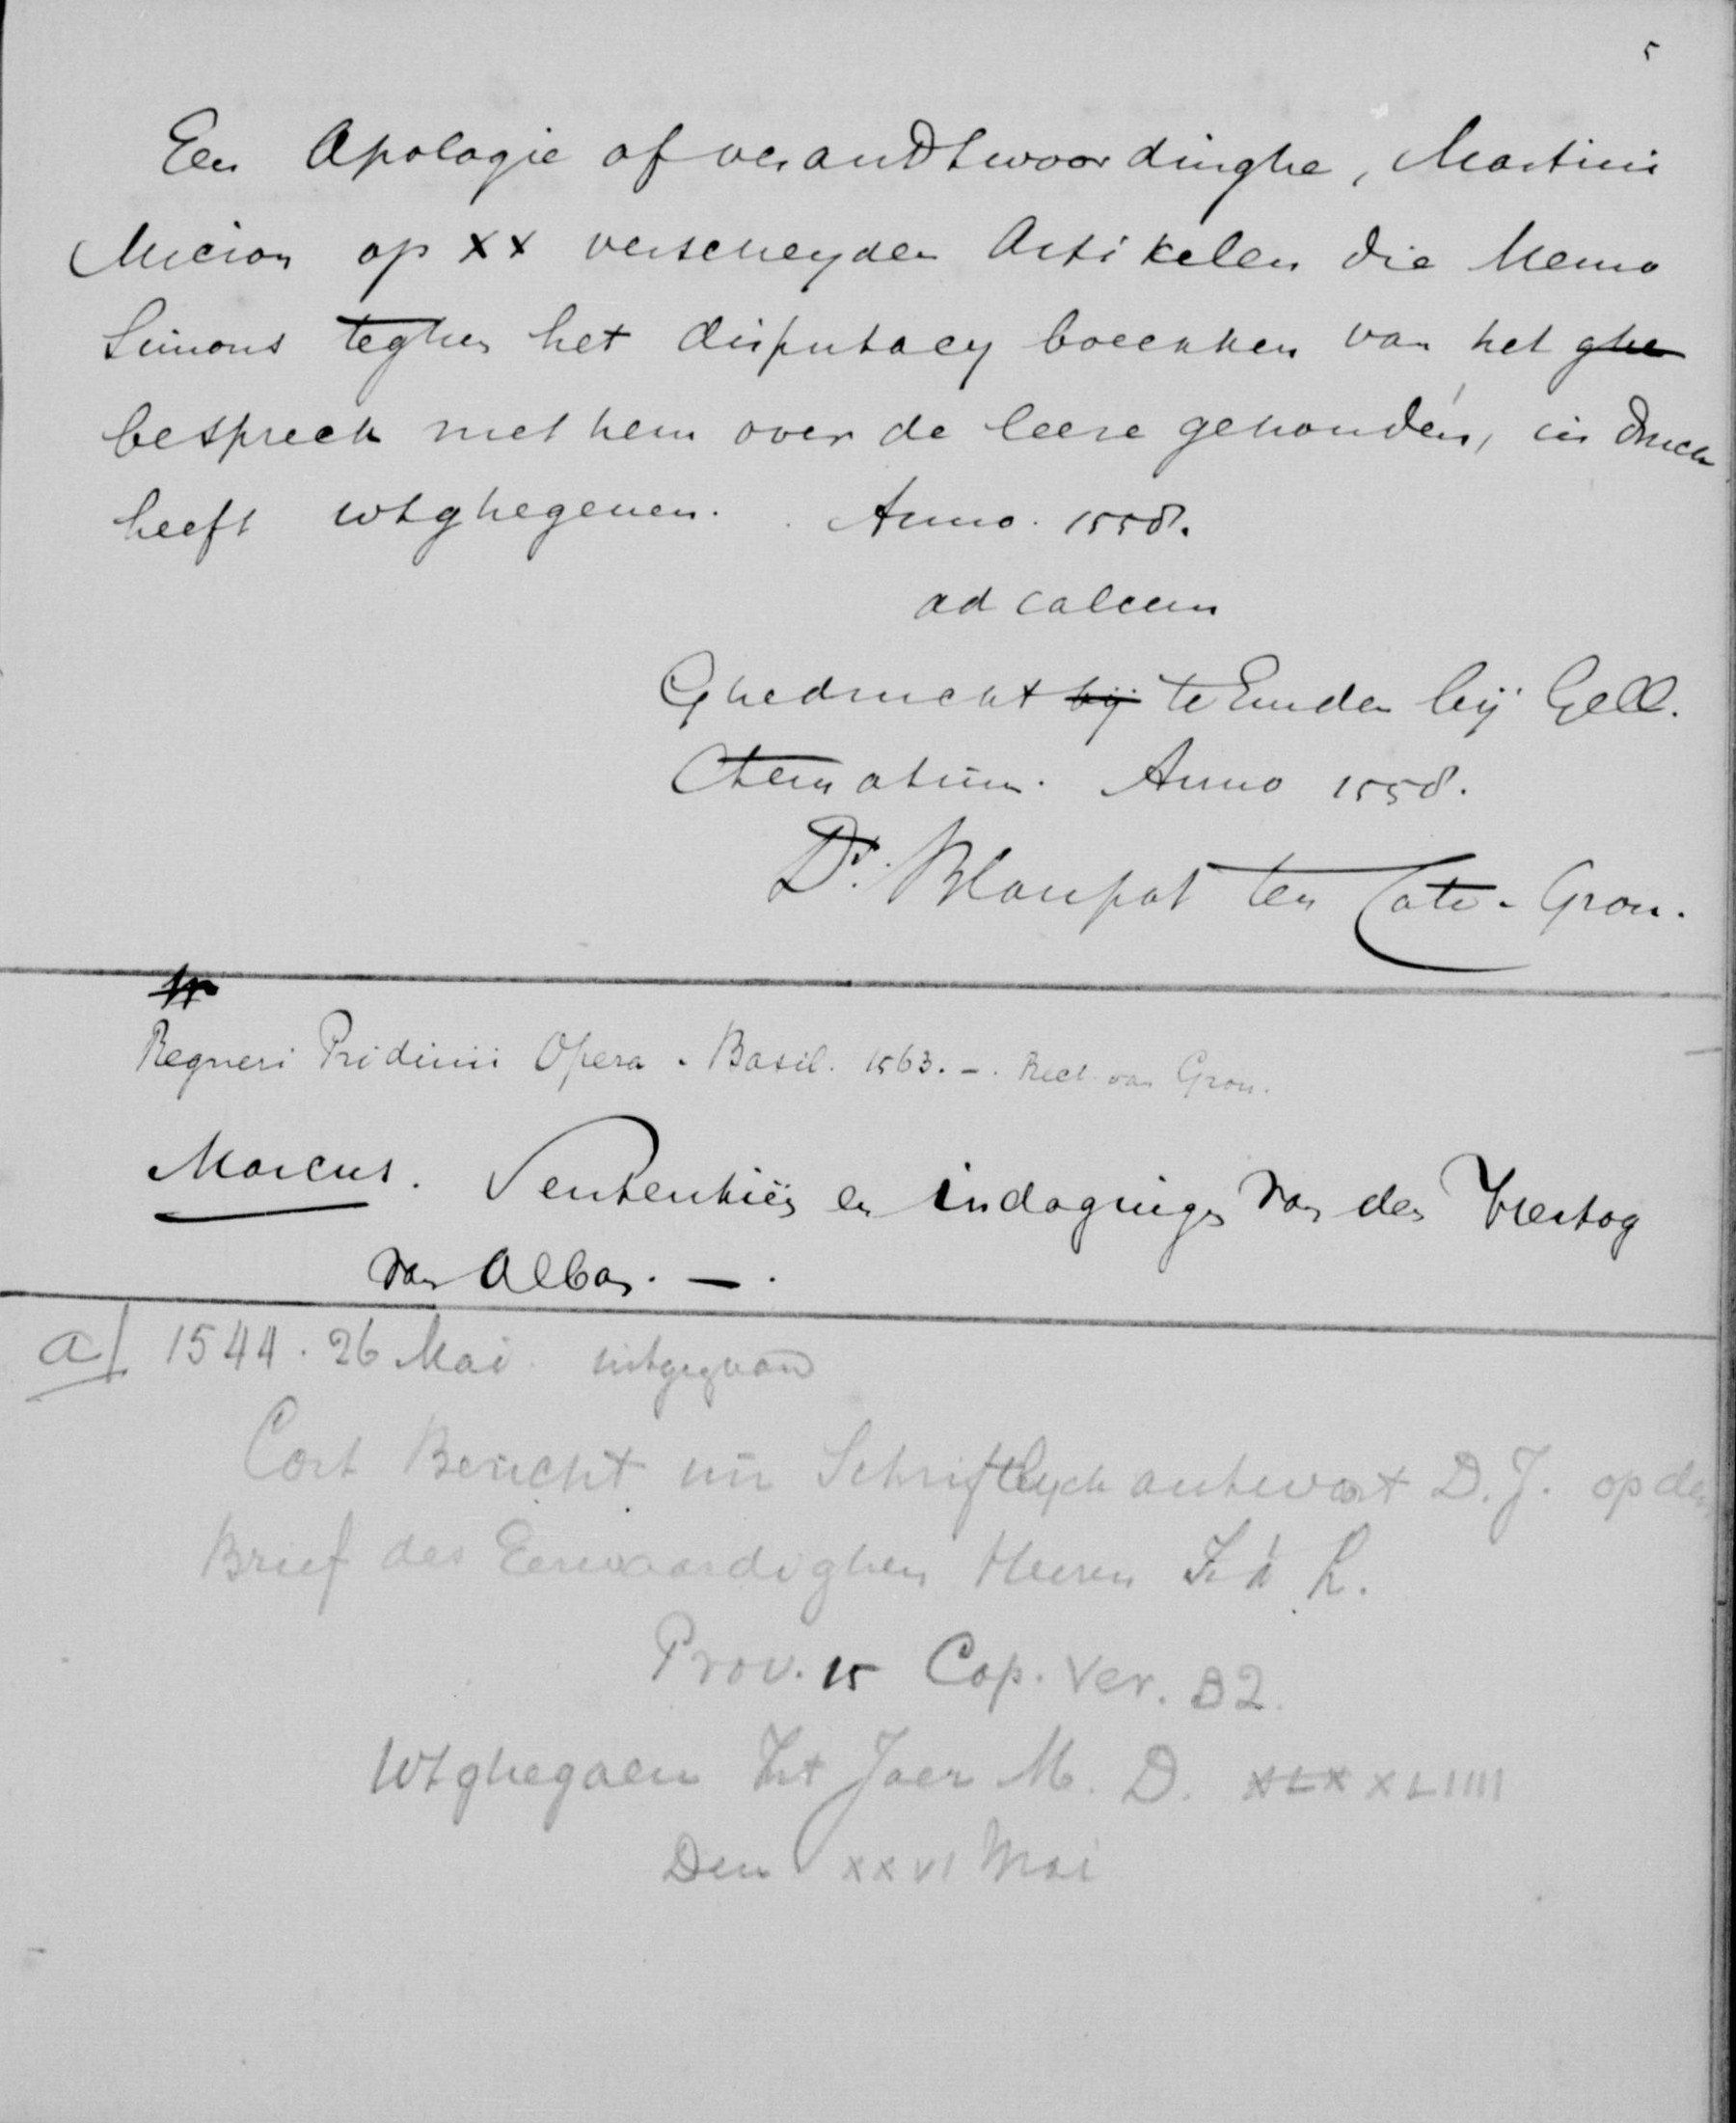 5
Een Apologie of verandtwoordinghe, Martini
Micron op XX verscheyden Artikelen die Menno
Simons teghen het disputacy boecxken van het ghe
bespreck met hem over de leere gehouden, in druck
heeft wtghegeuen. Anno. 1558.
ad calcem
Ghedruckt bij te Emden bij Gell.
Ctematium. Anno 1558.
Ds. Blaupot ten Cate. Gron.
Regneri Pridinii Opera. Basil. 1563. -. Rect van Gron.
Marcus. Sententiën en indagingen van den Hertog
van Alba. - .
a/ 1544. 26 Mai uitgegaan
Cort Bericht un Schriftlych antwort D. J. op den
Brief des Eerwaardighen Heeren J. à L.
Prov. 15 Cap. Ver. B2.
Wtghegaen Int Jaer M. D. XLX XLIIII
Den XXVI Mai